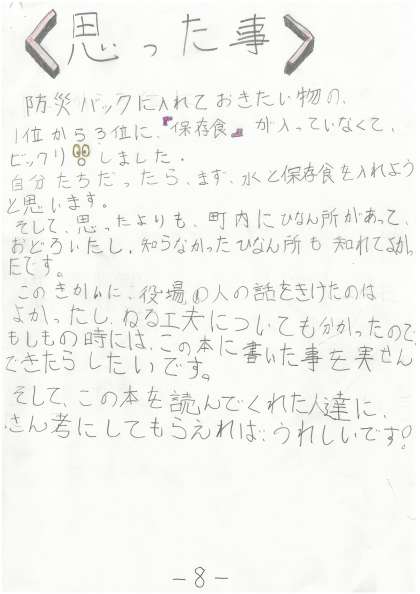 《思った事》
防災バックに入れておきたい物の、
1位から3位に、『保存食』が入っていなくて、
ビックリしました。
自分たちだったら、まず、水と保存食を入れよう
と思います。
そして、思ったよりも、町内にひなん所があって、
おどろいたし、知らなかったひなん所も知れてよかっ
たです。
このきかいに、役場の人の話をきけたのは
よかったし、ねる工夫についても分かったので、
もしもの時には、この本に書いた事を実せん
できたらしたいです。
そして、この本を読んでくれた人達に、
さん考にしてもらえれば、うれしいです!
-8-